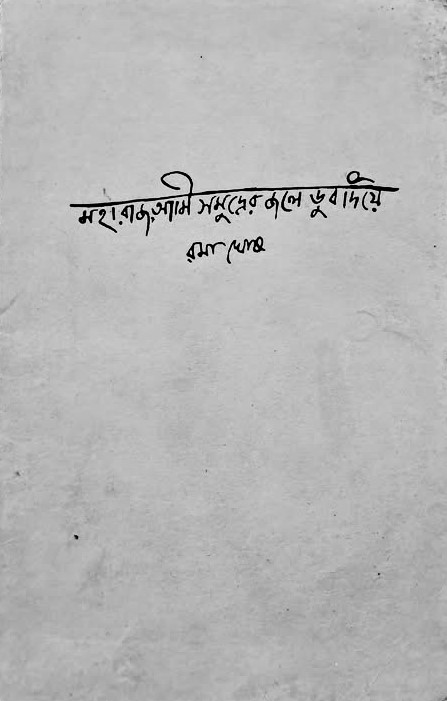 মহারাজ, আমি সমুদ্রের জলে ডুব দিয়ে
রমা ঘোষ